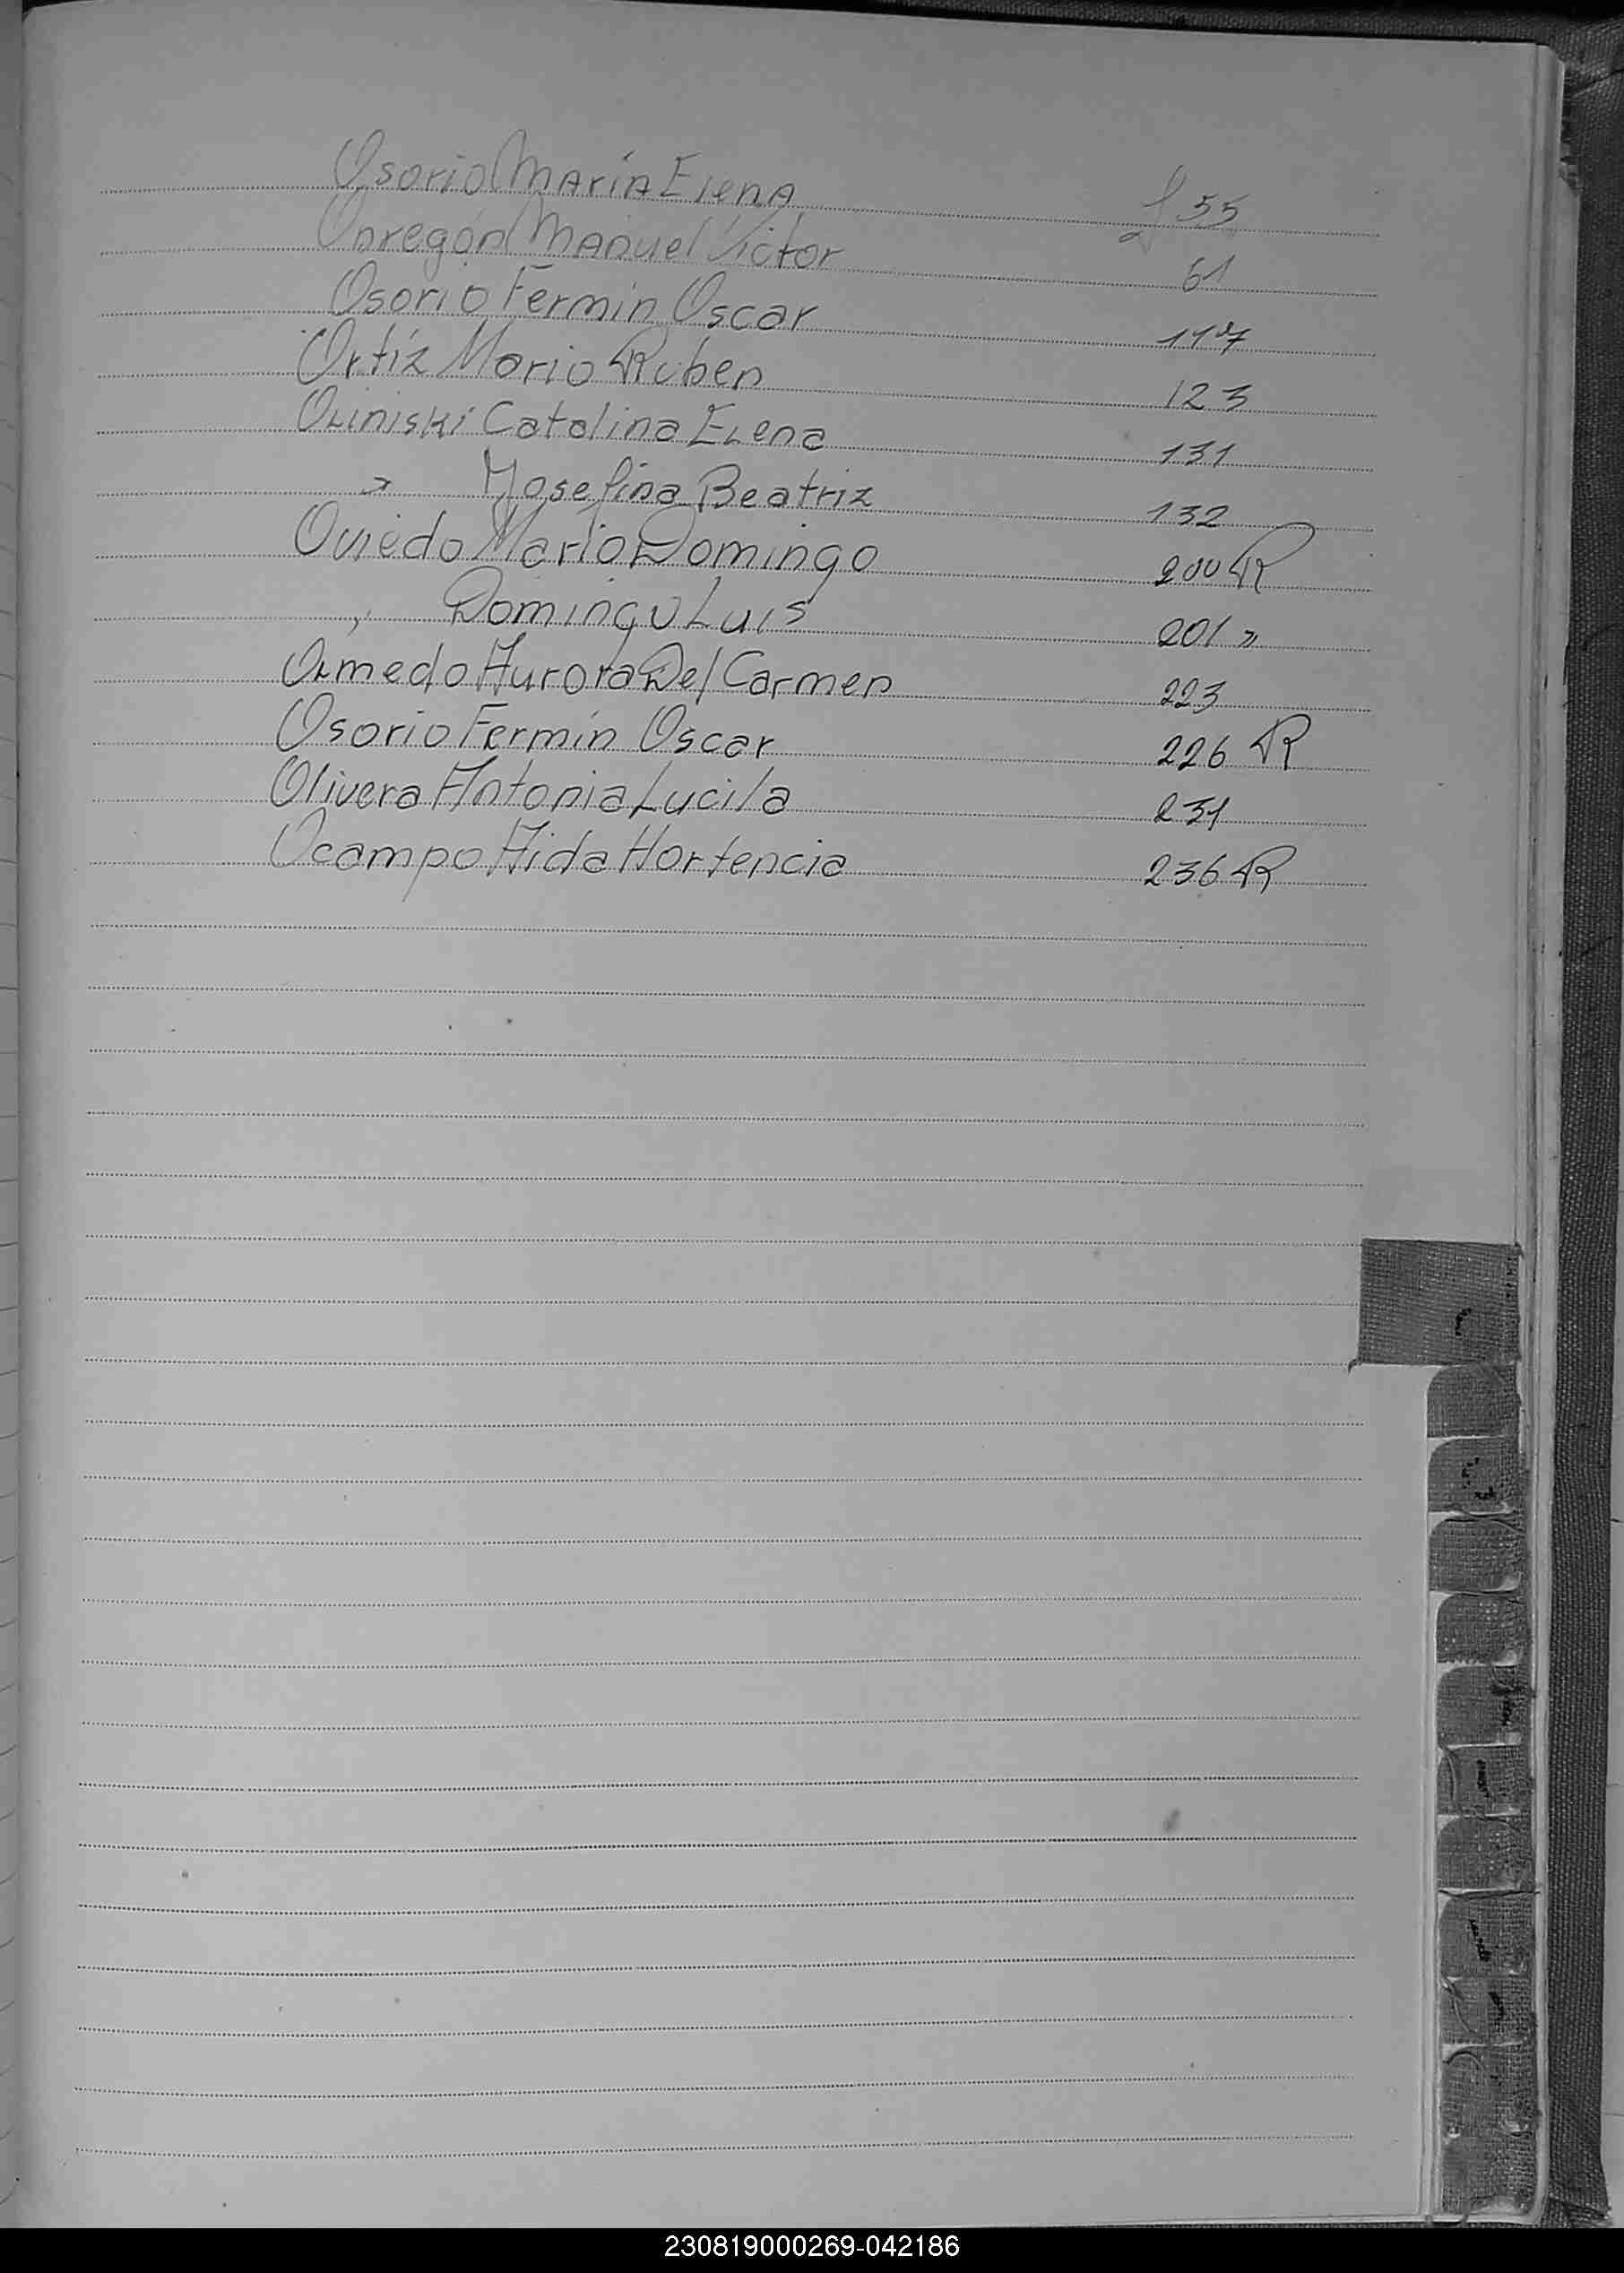 Osorio María Elena f 55
Obregón Manuel Victor 61
Osorio Fermin Oscar 117
Ortíz Mario Ruben 123
Oliniski Catalina Elena 131
" Josefina Beatriz 132
Oviedo Mario Domingo 200 R
" Domingo Luis 201 "
Olmedo Aurora Del Carmen 223
Osorio Fermín Oscar 226 R
Olivera Antonia Lucila 231
Ocampo Aida Hortencia 236 R
230819000269-042186